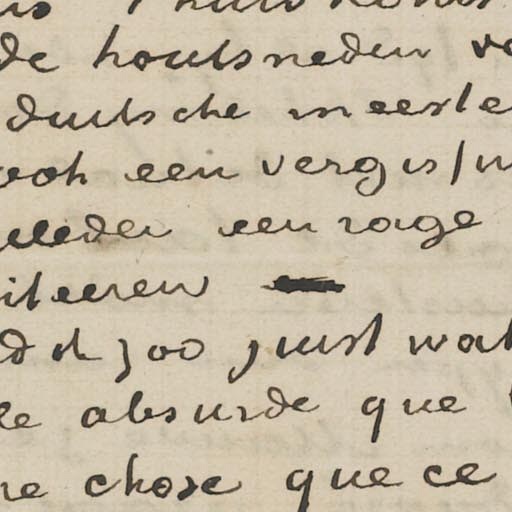 de houtsneden v
duitsche meeste
ook een vergis/n
leden een rage
iteeren
dd zoo juist wat
le absurde que
ne chose que ce